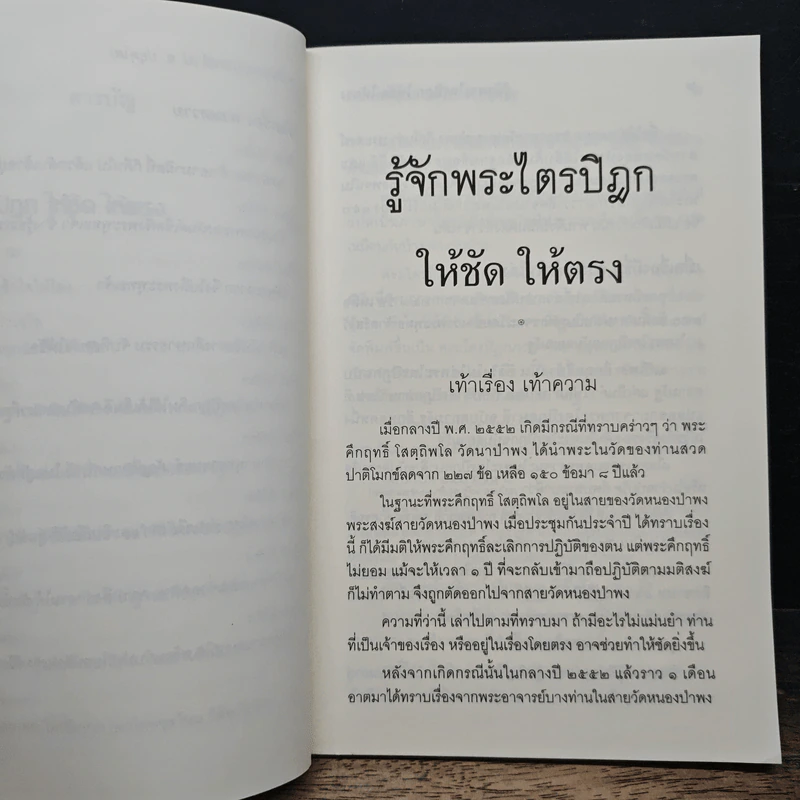 รู้จักพระไตรปิฎก
ให้ชัด ให้ตรง
๏
เท้าเรื่อง เท้าความ
เมื่อกลางปี พ.ศ. ๒๕๕๒ เกิดมีกรณีที่ทราบคร่าวๆ ว่า พระ
คึกฤทธิ์ โสตฺถิพโล วัดนาป่าพง ได้นำพระในวัดของท่านสวด
ปาติโมกข์ลดจาก ๒๒๗ ข้อ เหลือ ๑๕๐ ข้อมา ๘ ปีแล้ว
ในฐานะที่พระคึกฤทธิ์ โสตฺถิพโล อยู่ในสายของวัดหนองป่าพง
พระสงฆ์สายวัดหนองป่าพง เมื่อประชุมกันประจำปี ได้ทราบเรื่อง
นี้ ก็ได้มีมติให้พระคึกฤทธิ์ละเลิกการปฏิบัติของตน แต่พระคึกฤทธิ์
ไม่ยอม แม้จะให้เวลา ๑ ปี ที่จะกลับเข้ามาถือปฏิบัติตามมติสงฆ์
ก็ไม่ทำตาม จึงถูกตัดออกไปจากสายวัดหนองป่าพง
ความที่ว่านี้ เล่าไปตามที่ทราบมา ถ้ามีอะไรไม่แม่นยำ ท่าน
ที่เป็นเจ้าของเรื่อง หรืออยู่ในเรื่องโดยตรง อาจช่วยทำให้ชัดยิ่งขึ้น
หลังจากเกิดกรณีนั้นในกลางปี ๒๕๕๒ แล้วราว ๑ เดือน
อาตมาได้ทราบเรื่องจากพระอาจารย์บางท่านในสายวัดหนองป่าพง